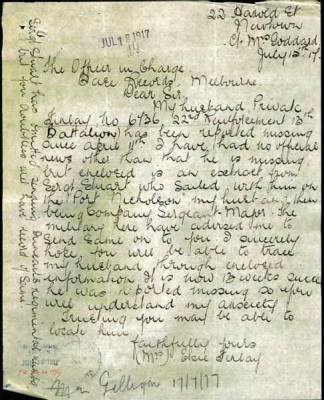 22 Harold St
Newtown
C/- Mrs Goddard
July 15th 17.
JUL 18 1917
The Officer in Charge
Base Records, Melbourne
Dear Sir,
My husband, Private
Finlay No 6736, 22nd Reinforcement 13th
Battalion, has been reported missing
since April 11th. I have had no official
news other than that he is missing
but enclosed is an extract from
Sergt Stuart who sailed with him on
the Port Nicholson, my husband then
being Company Sergeant Major. The
military here have advised me to
send same on to you. I sincerely
hope you will be able to trace
my husband, through enclosed
information. It is now 13 weeks since
he was reported missing so you
will understand my anxiety
Trusting you may be able to
locate him
faithfully yours
(Mrs) Elsie Finlay
17/7/17
Sergt Stuart has omitted sending Duncan's regimental
but you doubtless will have record of same